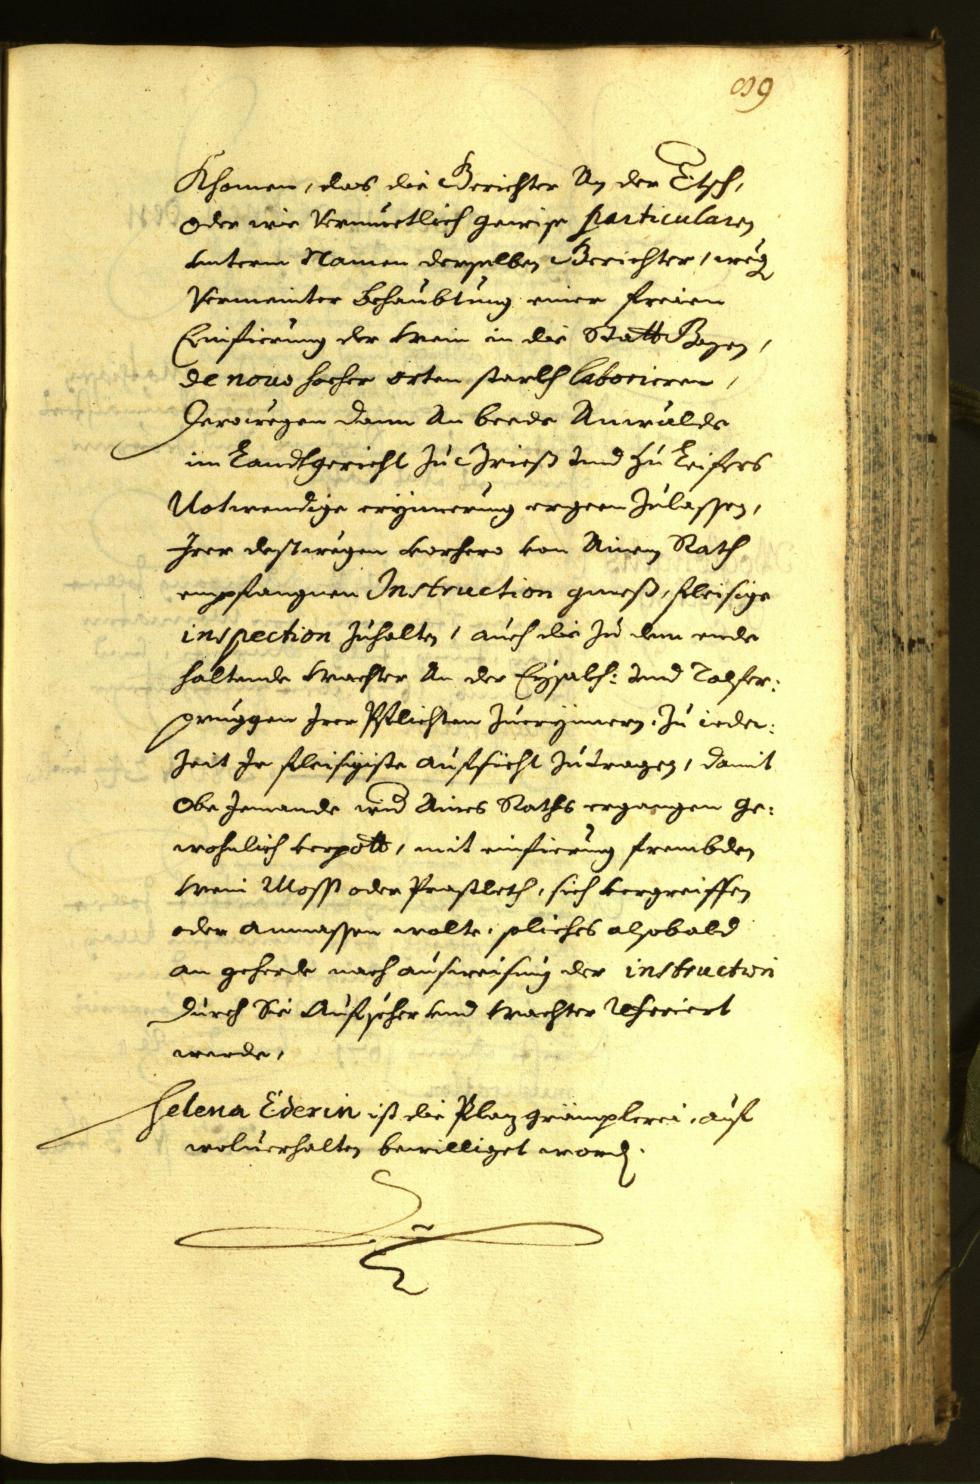 89
Khomen, das die Berichter An der Etsch,
oder wie Vermuetlich gewise particularen
unterm Namen derselben Berichter, weg
Vermeinter behaubtung einer freien
Einfierung der Wein in die Statt Bozen,
de novo hocher orten starkh laborieren,
Derowegen dann An beede Anwälde
im Landtgericht zu Grieß und zu Leifers
Notwendige erynnerung ergeen zulassen,
Irer destwegen vorhero von Ainem Rath
empfangnen Instruction gmeß, fleisige
inspection zuhalten, auch die zu dem ende
haltende Wachter An der Eysakh: und Talfer:
pruggen Irer Pflichten zuerynnern, zu ieder:
Zeit Ir fleisigiste aufsicht zutragen, damit
Obe Jemande wid Aines Raths ergangen ge:
wohnlich verpott, mit einfierung frembden
Wein Most oder Praschleth, sich vergreiffen
oder anmassen wolte, soliches alsobald
an geherde nach ausweisung der instruction
durch Sie Aufseher und Wachter referiert
werde,
Helena Ederin ist die Plaz grämplerei, auf
wolverhalten bewilliget word.